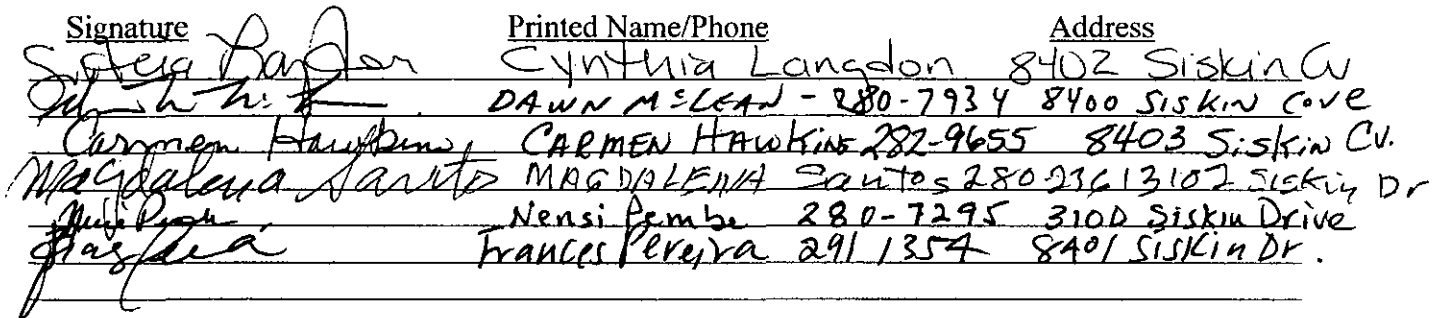 Signature Printed Name/Phone Address
Cynthia Langdon 8402 Siskin Cv
DAWN McLEAN - 280-7934 8400 Siskin Cove
Carmen Hawkins, CARMEN HAWKINS 282-9655 8403 Siskin Cv.
Magdalena Santos MAGDALENA Santos 280 2361 3102 Siskin Dr
Nensi Pembe 280-7295 3100 Siskin Drive
Frances Pereira 291 1354 8401 Siskin Dr.